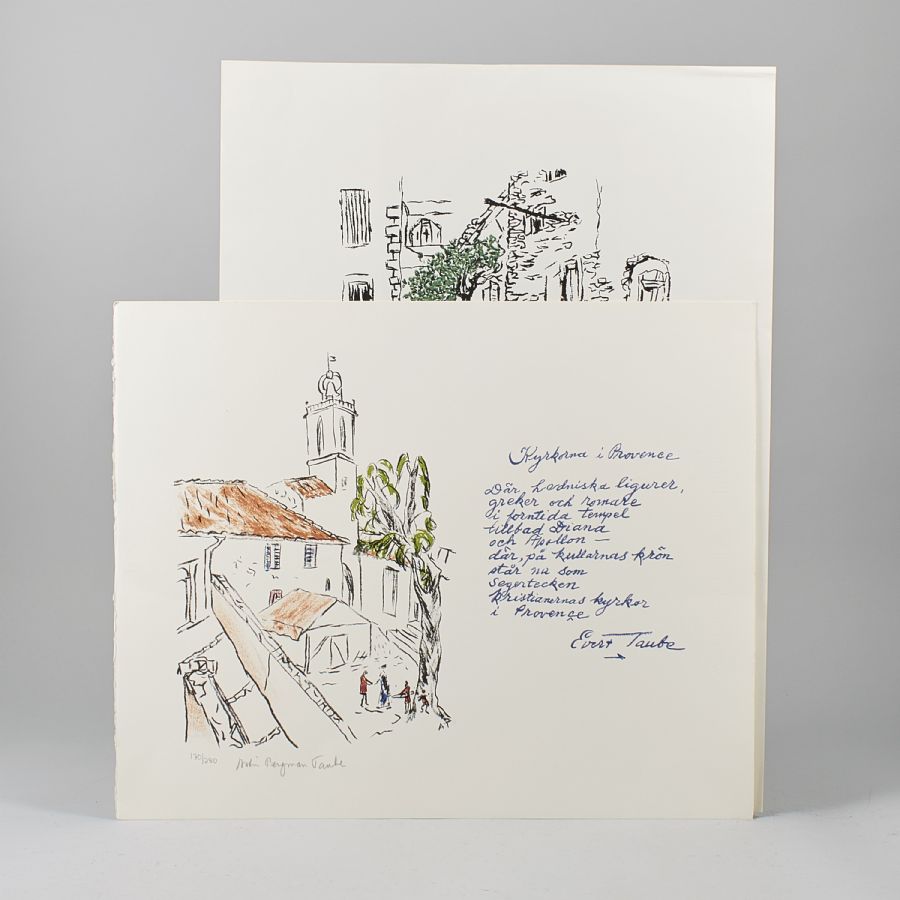 Kyrkorna i Provence
Där, hedniska ligurer,
greker och romare
i forntida tempel
tillbad Diana
och Apollon —
där, på kullarnas krön
står nu som
Segertecken
Kristianernas kyrkor
i Provence
Evert Taube
190/280 Astri Bergman Taube